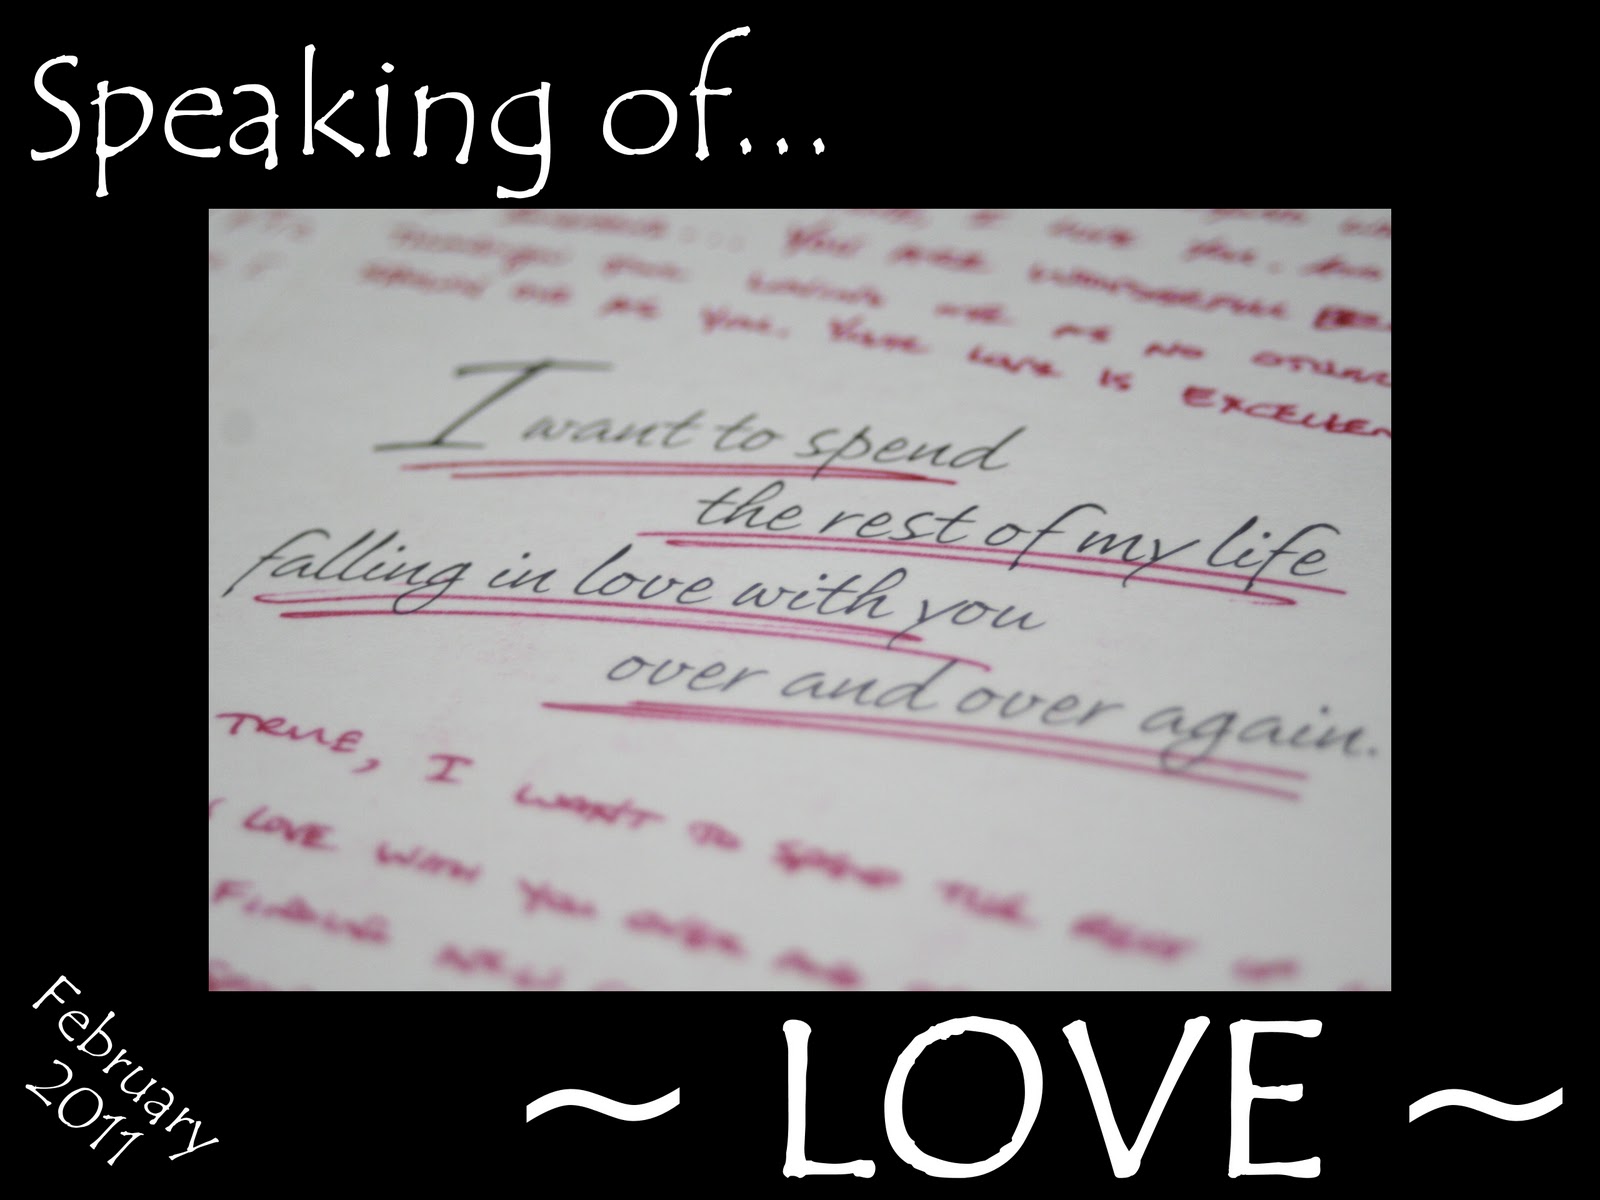 Speaking of...
YOU ARE WONDERFUL
LOVING ME AS NO OTHER
ME AS YOU. YOUR LOVE IS EXCELLEN
I want to spend
the rest of my life
falling in love with you
over and over again.
TRUE, I WANT TO SPEND THE REST OF
LOVE WITH YOU OVER AND
FINDING NEW
February
2011
~ LOVE ~